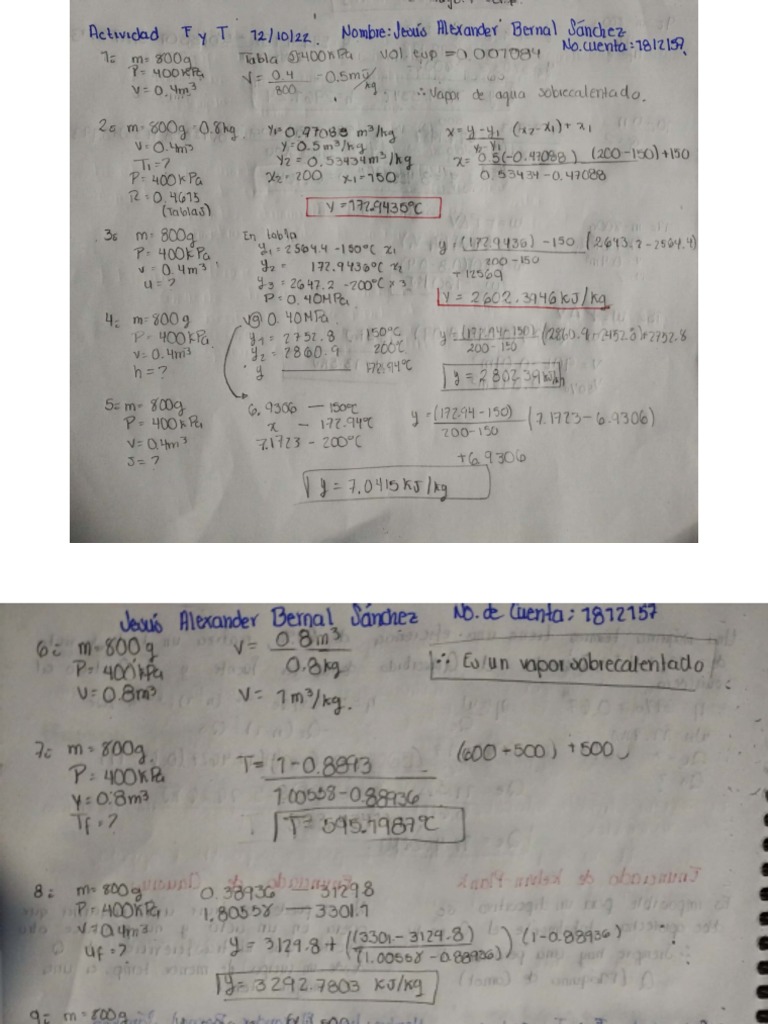 Actividad F y T 12/10/22. Nombre: Jesús Alexander Bernal Sánchez
No. cuenta: 1812157
1: m= 800g
P= 400KPa
V= 0.4m³
Tabla @ 400KPa vol esp =
V= 0.4/800 = 0.5 m³/kg
∴ Vapor de agua sobrecalentado.
2: m= 800g = 0.8kg
V= 0.4m³
T₁= ?
P= 400KPa
R= 0.4615
(Tablas)
y₁= 0.47088 m³/kg
y= 0.5m³/kg
y₂= 0.53434m³/kg
x₂= 200 x₁=150
x= y-y₁/y₂-y₁ (x₂-x₁)+x₁
x= 0.5(-0.47088) (200-150)+150
0.53434-0.47088
y=172.9435°C
3: m= 800g
P= 400KPa
V= 0.4m³
u= ?
En tabla
y₁= 2564.4 -150°C x₁
y₂= 172.9436°C x₂
y₃= 2647.2 -200°C x3
P= 0.40MPa
y= (172.9436) - 150 (2643.2-2564.4)
200-150
y= 2602.3946 KJ/kg
4: m= 800g
P= 400KPa
V= 0.4m³
h= ?
V@ 0.40MPa
y₁= 2752.8 150°C
y₂= 2860.9 200°C
y 172.94°C
y= (172.94-150) (2860.9-2752.8)+2752.8
200-150
y= 2802.39
5: m= 800g
P= 400KPa
V= 0.4m³
S= ?
6.9306 — 150°C
x — 172.94°C
7.1723 - 200°C
y= (172.94-150) (7.1723-6.9306)
200-150
+6.9306
y= 7.0415 KJ/kg
Jesús Alexander Bernal Sánchez No. de Cuenta: 1812157
6: m= 800g
P= 400KPa
V= 0.8m³
V= 0.8m³
0.8kg
V= 1m³/kg.
∴ Es un vapor sobrecalentado
7: m= 800g
P= 400KPa
V= 0.8m³
Tf= ?
T= 1-0.8893 (600+500)+500
1.00558-0.88936
T= 595.1987°C
8: m= 800g
P= 400KPa
V= 0.4m³
uf= ?
0.38936 3129.8
1.80558 — 3301.1
y= 3129.8+((3301-3129.8)) (1-0.88936)
(1.00558-0.88936)
y= 3292.7803 KJ/kg
9: m= 800g